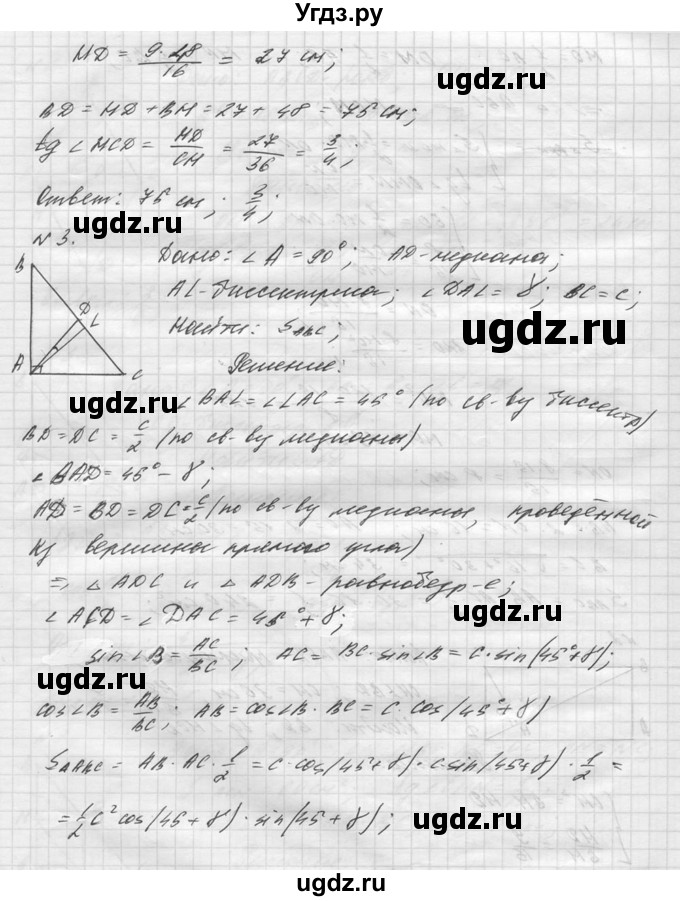 Угдз.ру
MD = 9·48/16 = 27 см;
ugdz.ru
BD = MD + BM = 27 + 48 = 75 см;
tg ∠MCD = MD/CM = 27/36 = 3/4;
Ответ: 75 см; 3/4;
ugdz.ru
№3.
Дано: ∠A = 90°; AD - медиана;
AL - биссектриса; ∠DAL = γ; BC = c;
ugdz.ru
Найти: S ABC;
Решение:
B
D
L
A
C
ugdz.ru
∠BAL = ∠LAC = 45° (по св-ву биссектр)
BD = DC = c/2 (по св-ву медианы)
∠BAD = 45° - γ;
AD = BD = DC = c/2 (по св-ву медианы, проведённой
из вершины прямого угла)
ugdz.ru
ugdz.ru
⇒ △ADC и △ADB - равнобедр-е;
∠ACD = ∠DAC = 45° + γ;
sin∠B = AC/BC; AC = BC · sin∠B = c · sin(45° + γ);
ugdz.ru
ugdz.ru
cos∠B = AB/BC; AB = cos∠B · BC = c · cos(45° + γ)
S△ABC = AB · AC · 1/2 = c · cos(45 + γ) · c · sin(45 + γ) · 1/2 =
ugdz.ru
= 1/2 c² cos(45 + γ) · sin(45 + γ);
ugdz.ru
ugdz.ru